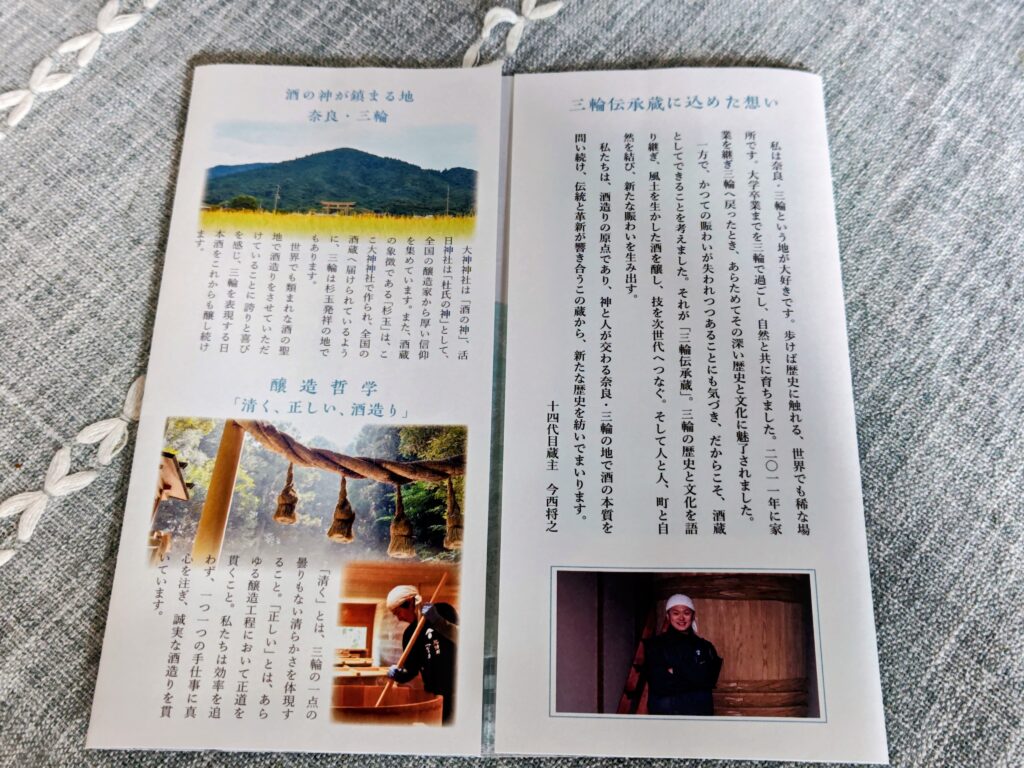 酒の神が鎮まる地
奈良・三輪
大神神社は「酒の神」、活
日神社は「杜氏の神」として、
全国の醸造家から厚い信仰
を集めています。また、酒蔵
の象徴である「杉玉」は、こ
こ大神神社で作られ、全国の
酒蔵へ届けられているよう
に、三輪は杉玉発祥の地で
もあります。
世界でも類まれな酒の聖
地で酒造りをさせていただ
けていることに誇りと喜び
を感じ、三輪を表現する日
本酒をこれからも醸し続け
ます。
醸造哲学
「清く、正しい、酒造り」
「清く」とは、三輪の一点の
曇りもない清らかさを体現す
ること。「正しい」とは、あら
ゆる醸造工程において正道を
貫くこと。私たちは効率を追
わず、一つ一つの手仕事に真
心を注ぎ、誠実な酒造りを貫
いています。
三輪伝承蔵に込めた想い
私は奈良・三輪という地が大好きです。歩けば歴史に触れる、世界でも稀な場
所です。大学卒業までを三輪で過ごし、自然と共に育ちました。二〇一一年に家
業を継ぎ三輪へ戻ったとき、あらためてその深い歴史と文化に魅了されました。
一方で、かつての賑わいが失われつつあることにも気づき、だからこそ、酒蔵
としてできることを考えました。それが「三輪伝承蔵」。三輪の歴史と文化を語
り継ぎ、風土を生かした酒を醸し、技を次世代へつなぐ。そして人と人、町と自
然を結び、新たな賑わいを生み出す。
私たちは、酒造りの原点であり、神と人が交わる奈良・三輪の地で酒の本質を
問い続け、伝統と革新が響き合うこの蔵から、新たな歴史を紡いでまいります。
十四代目蔵主 今西将之